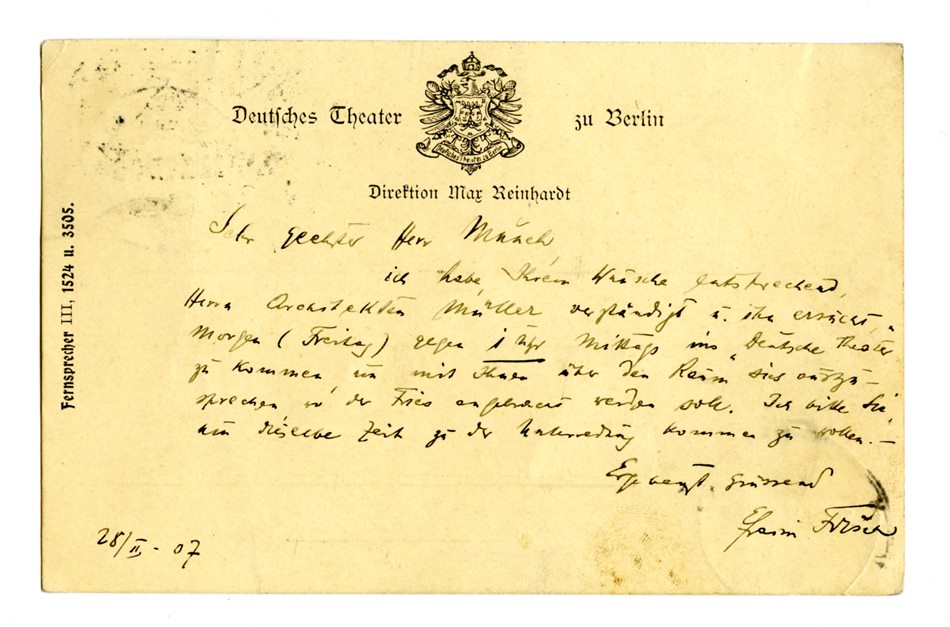 Deutsches Theater zu Berlin
Deutsches Theater zu Berlin
Direktion Max Reinhardt
Fernsprecher III, 1524 u. 3505.
Sehr geehrter Herr Munch
ich habe Ihrem Wunsche entsprechend,
Herrn Architekten Müller verständigt u. ihn ersucht,
Morgen (Freitag) gegen 1 Uhr Mittags ins "Deutsche Theater"
zu kommen, um mit Ihnen über den Raum sich auszu-
sprechen wo der Fries angebracht werden soll. Ich bitte Sie
um dieselbe Zeit zu der Unterredung kommen zu wollen. –
Ergebenst grüssend
Efraim Frisch
28/II – 07